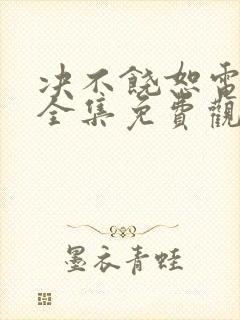 决不饶恕電
全集免費觀
墨衣青蛙